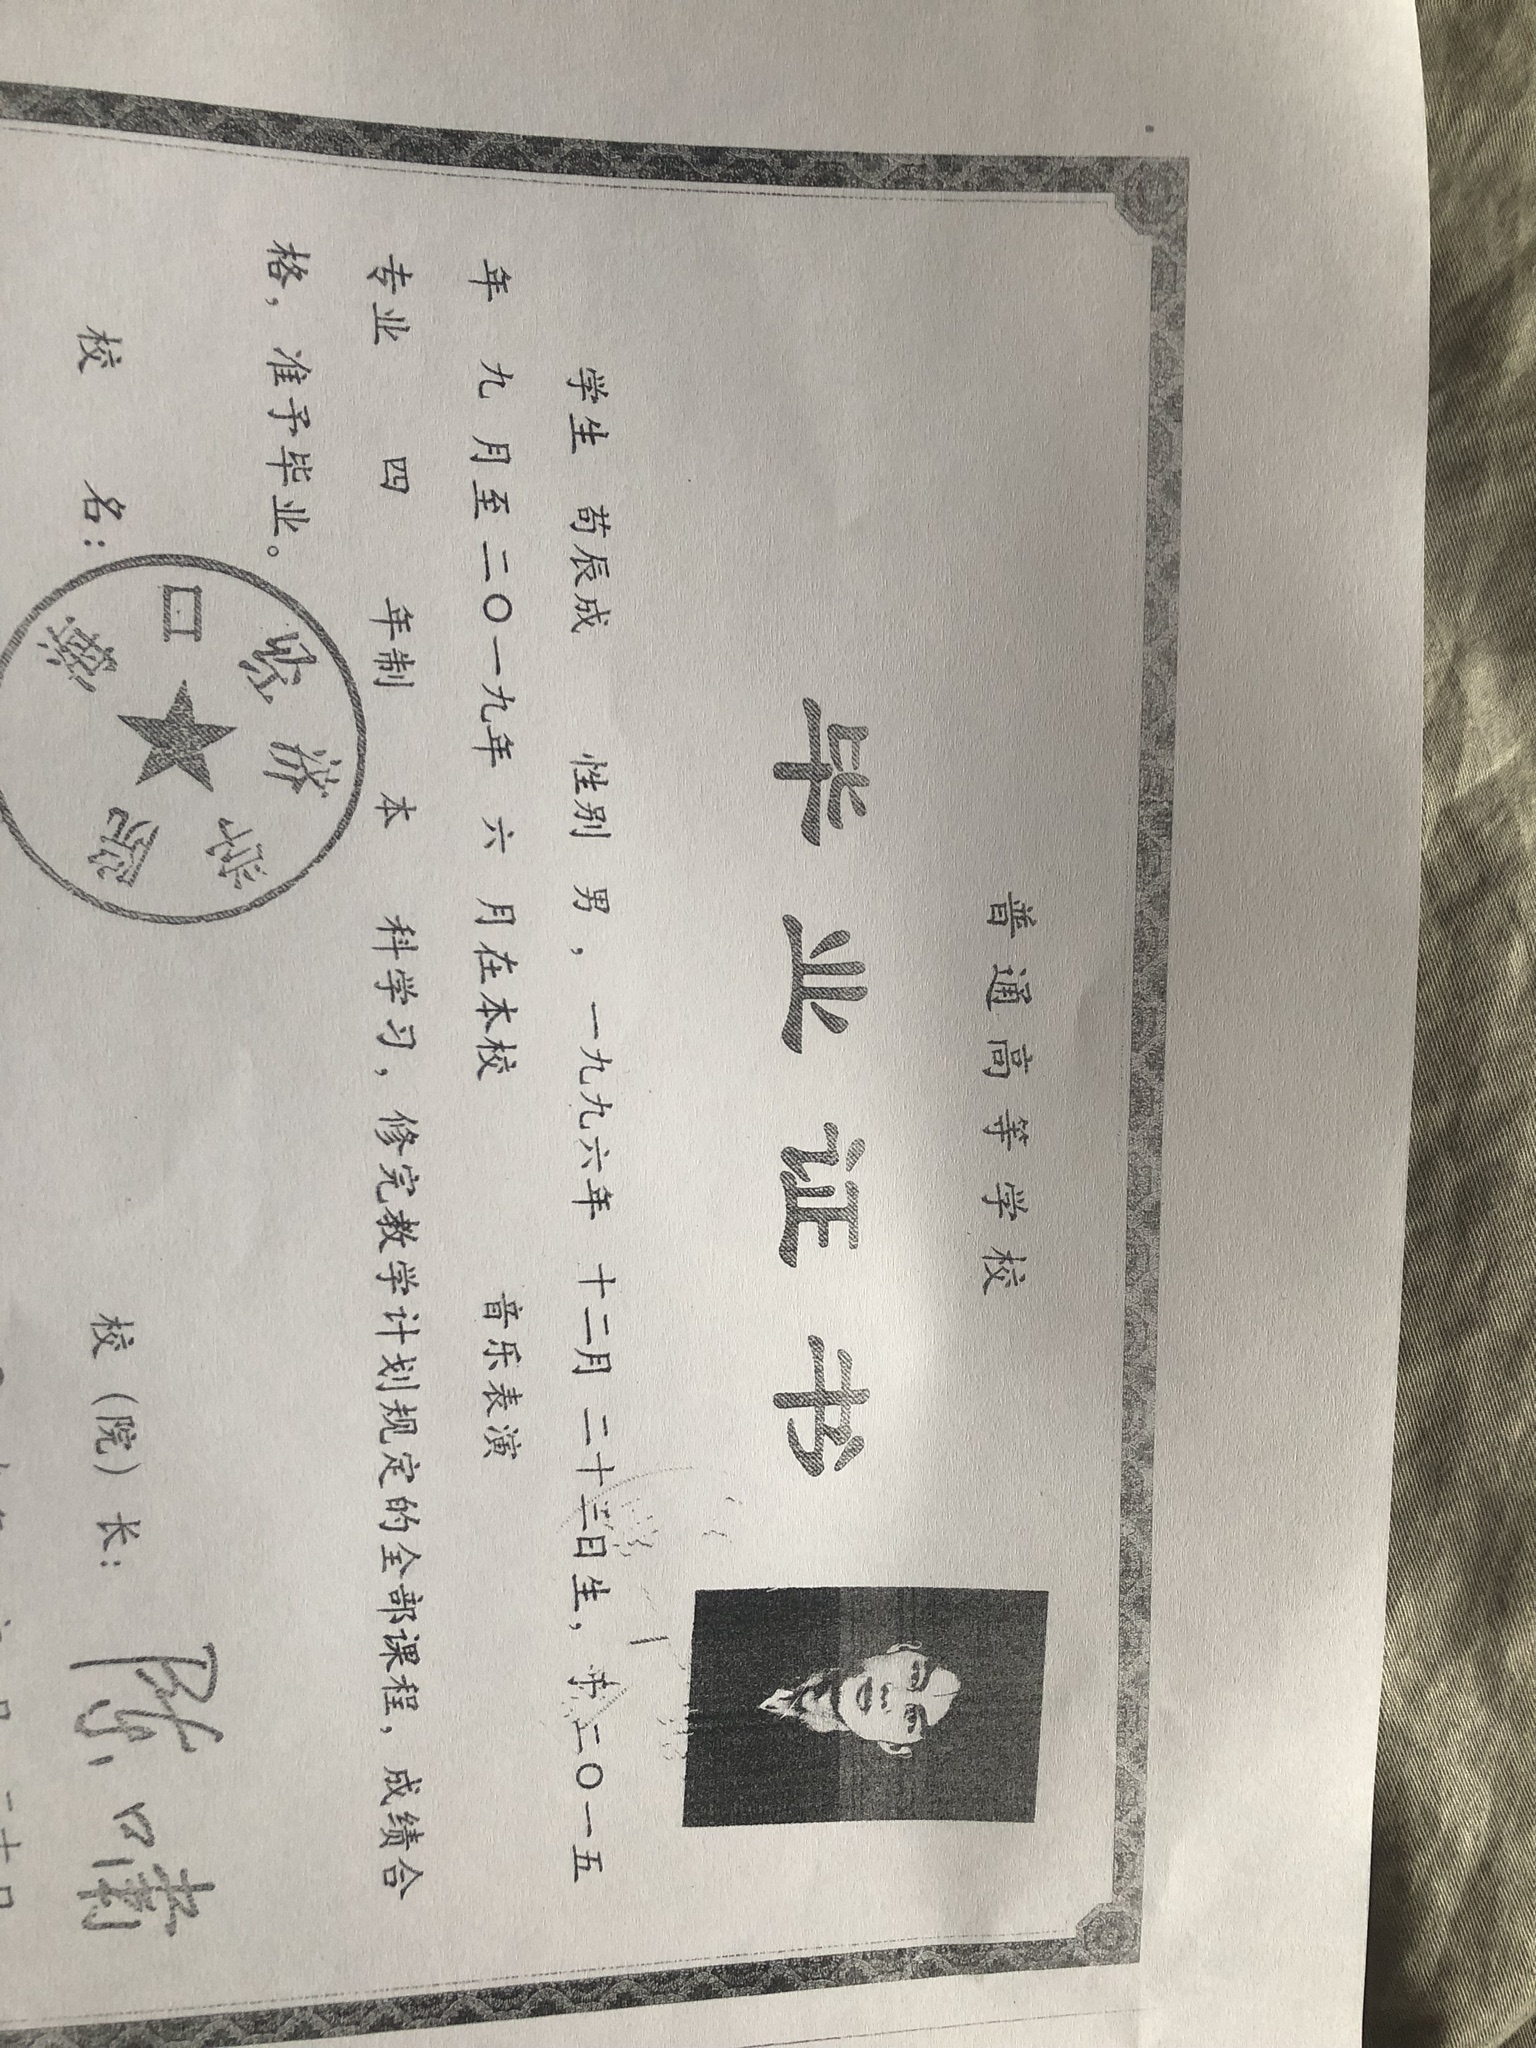 普通高等学校
毕业证书
学生 苟辰成 性别 男，一九九六年 十二月 二十三日生，于二〇一五
年 九 月至二〇一九年 六 月在本校 音乐表演
专业 四 年制 本 科学习，修完教学计划规定的全部课程，成绩合
格，准予毕业。
校 名： 校（院）长：